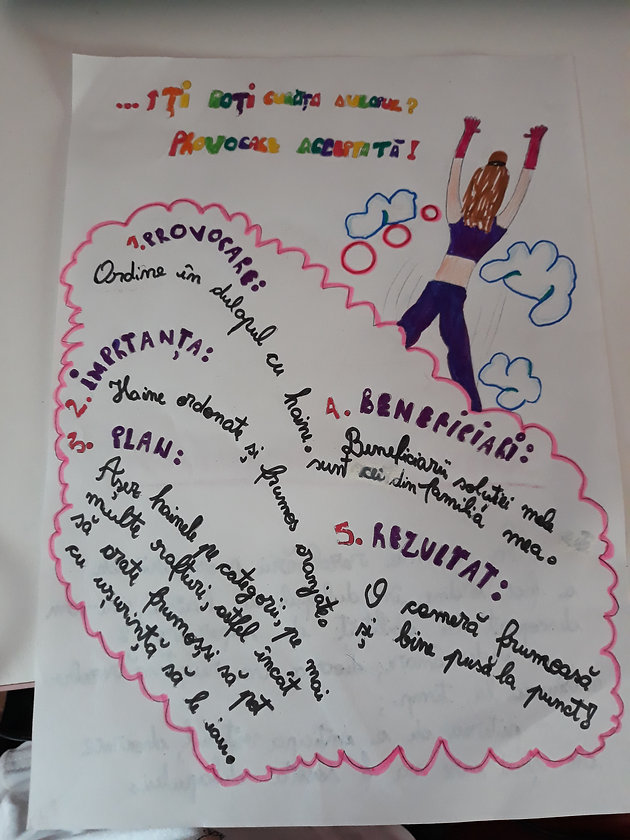 ...ÎȚI POȚI CURĂȚA DULAPUL?
PROVOCARE ACCEPTATĂ!
1. PROVOCARE:
Ordine în dulapul cu haine.
2. IMPRTANȚA:
Haine ordonate și frumos aranjate.
3. PLAN:
Așez hainele pe categorii, pe mai
multe rafturi, astfel încât
să arate frumos și să pot
cu ușurință să le iau.
4. BENEFICIARI:
Beneficiarii soluției mele
sunt cei din familia mea.
5. REZULTAT:
O cameră frumoasă
și bine pusă la punct!